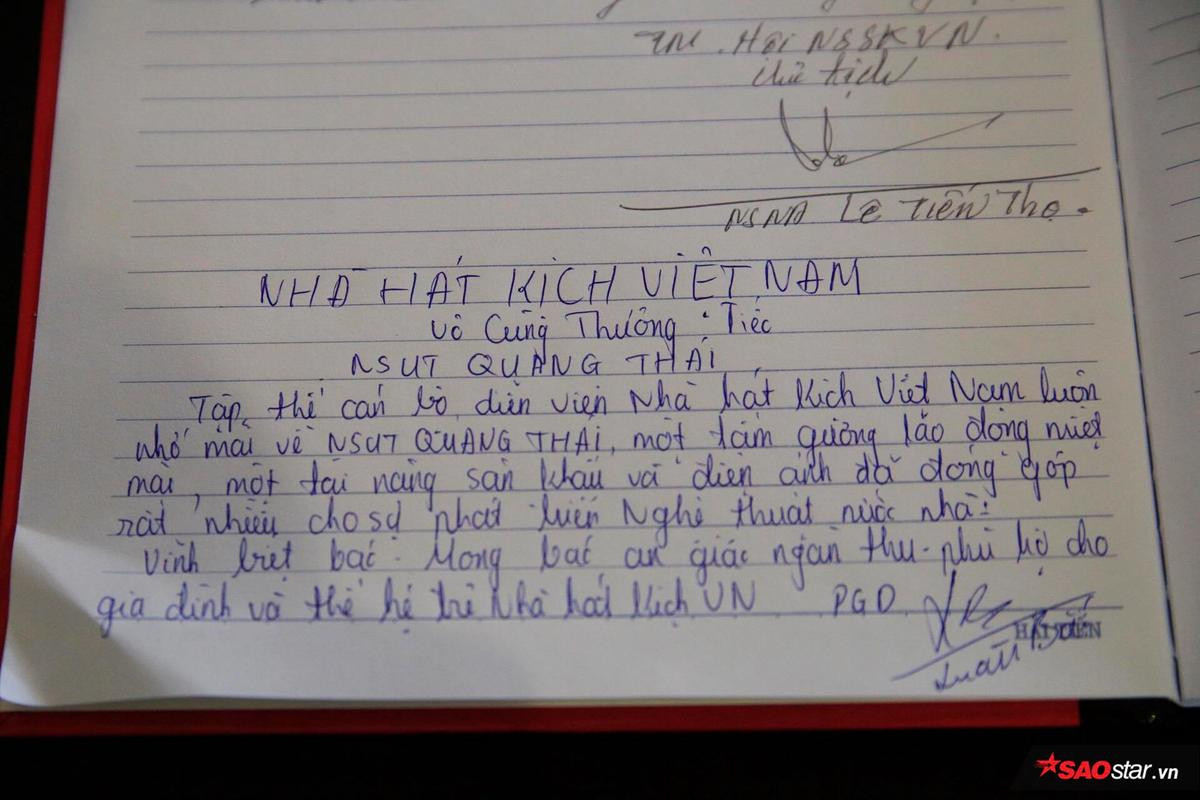 TM. Hội NSSKVN.
Chủ tịch
NSND Lê Tiến Thọ.
NHÀ HÁT KỊCH VIỆT NAM
Vô Cùng Thương Tiếc
NSUT QUANG THÁI
Tập thể cán bộ diễn viên Nhà hát Kịch Việt Nam luôn
nhớ mãi về NSUT QUANG THÁI, một tấm gương lao động miệt
mài, một tài năng sân khấu và điện ảnh đã đóng góp
rất nhiều cho sự phát triển Nghệ thuật nước nhà!
Vĩnh biệt bác. Mong bác an giấc ngàn thu - phù hộ cho
gia đình và thế hệ trẻ Nhà hát Kịch VN PGD
SAOstar.vn